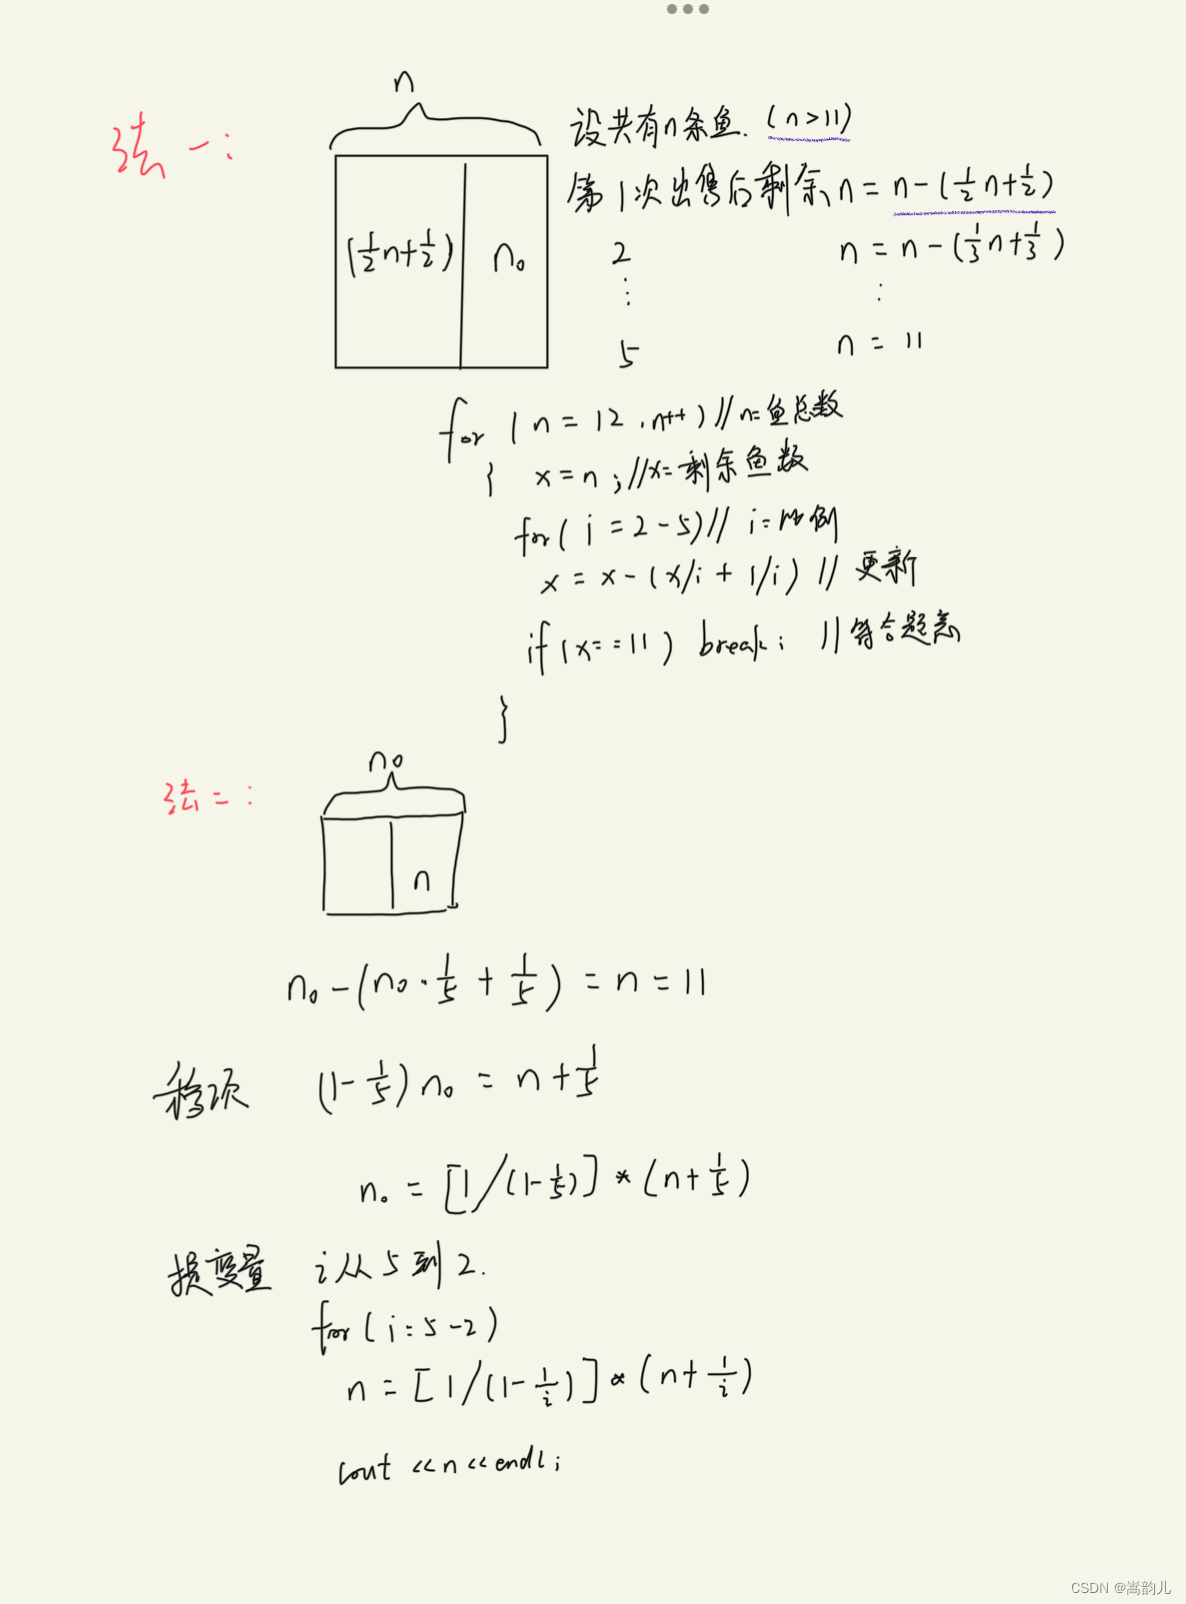 n
法一:
设共有n条鱼. (n>11)
第1次出售后剩余n = n-(1/2n+1/2)
(1/2n+1/2) n₀
2 n = n-(1/3n+1/3)
⋮ ⋮
5 n = 11
for (n = 12, n++) //n=鱼总数
{ x = n; //x=剩余鱼数
for( i = 2-5) // i=比例
x = x-(x/i + 1/i) // 更新
if(x==11) break; //符合题意
}
n₀
法二:
n
n₀-(n₀·1/5 + 1/5) = n = 11
移项 (1-1/5)n₀ = n+1/5
n₀ = [1/(1-1/5)]*(n+1/5)
换变量 i从5到2.
for( i=5-2)
n = [1/(1-1/i)]*(n+1/i)
cout <<n<<endl;
CSDN @嵩韵儿